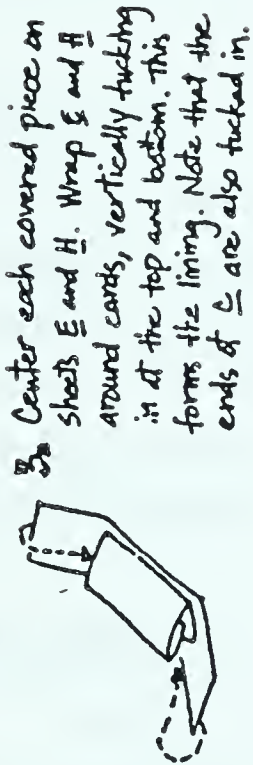 3. Center each covered piece on
sheets E and H. Wrap E and H
around cards, vertically tucking
in at the top and bottom. This
forms the lining. Note that the
ends of C are also tucked in.